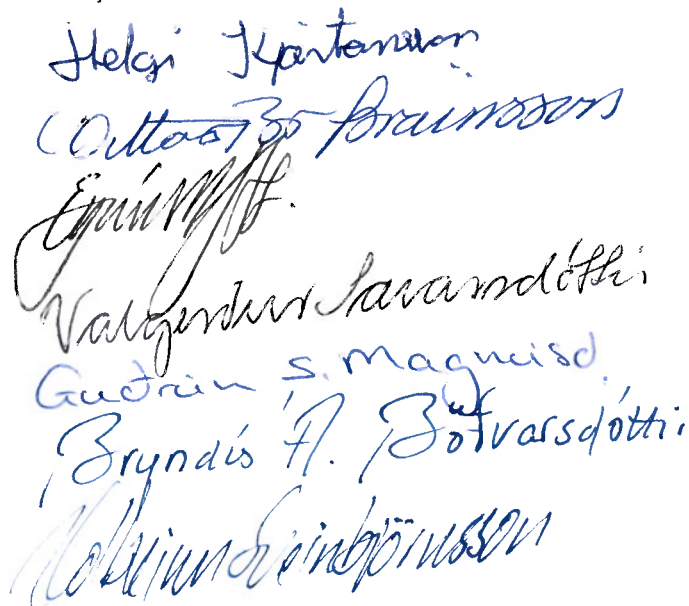 Helgi Kjartansson
Óttar Bragi Þráinsson
Valgerður Sævarsdóttir
Guðrún S. Magnúsd.
Bryndís Á. Böðvarsdóttir
Kolbeinn Sveinbjörnsson